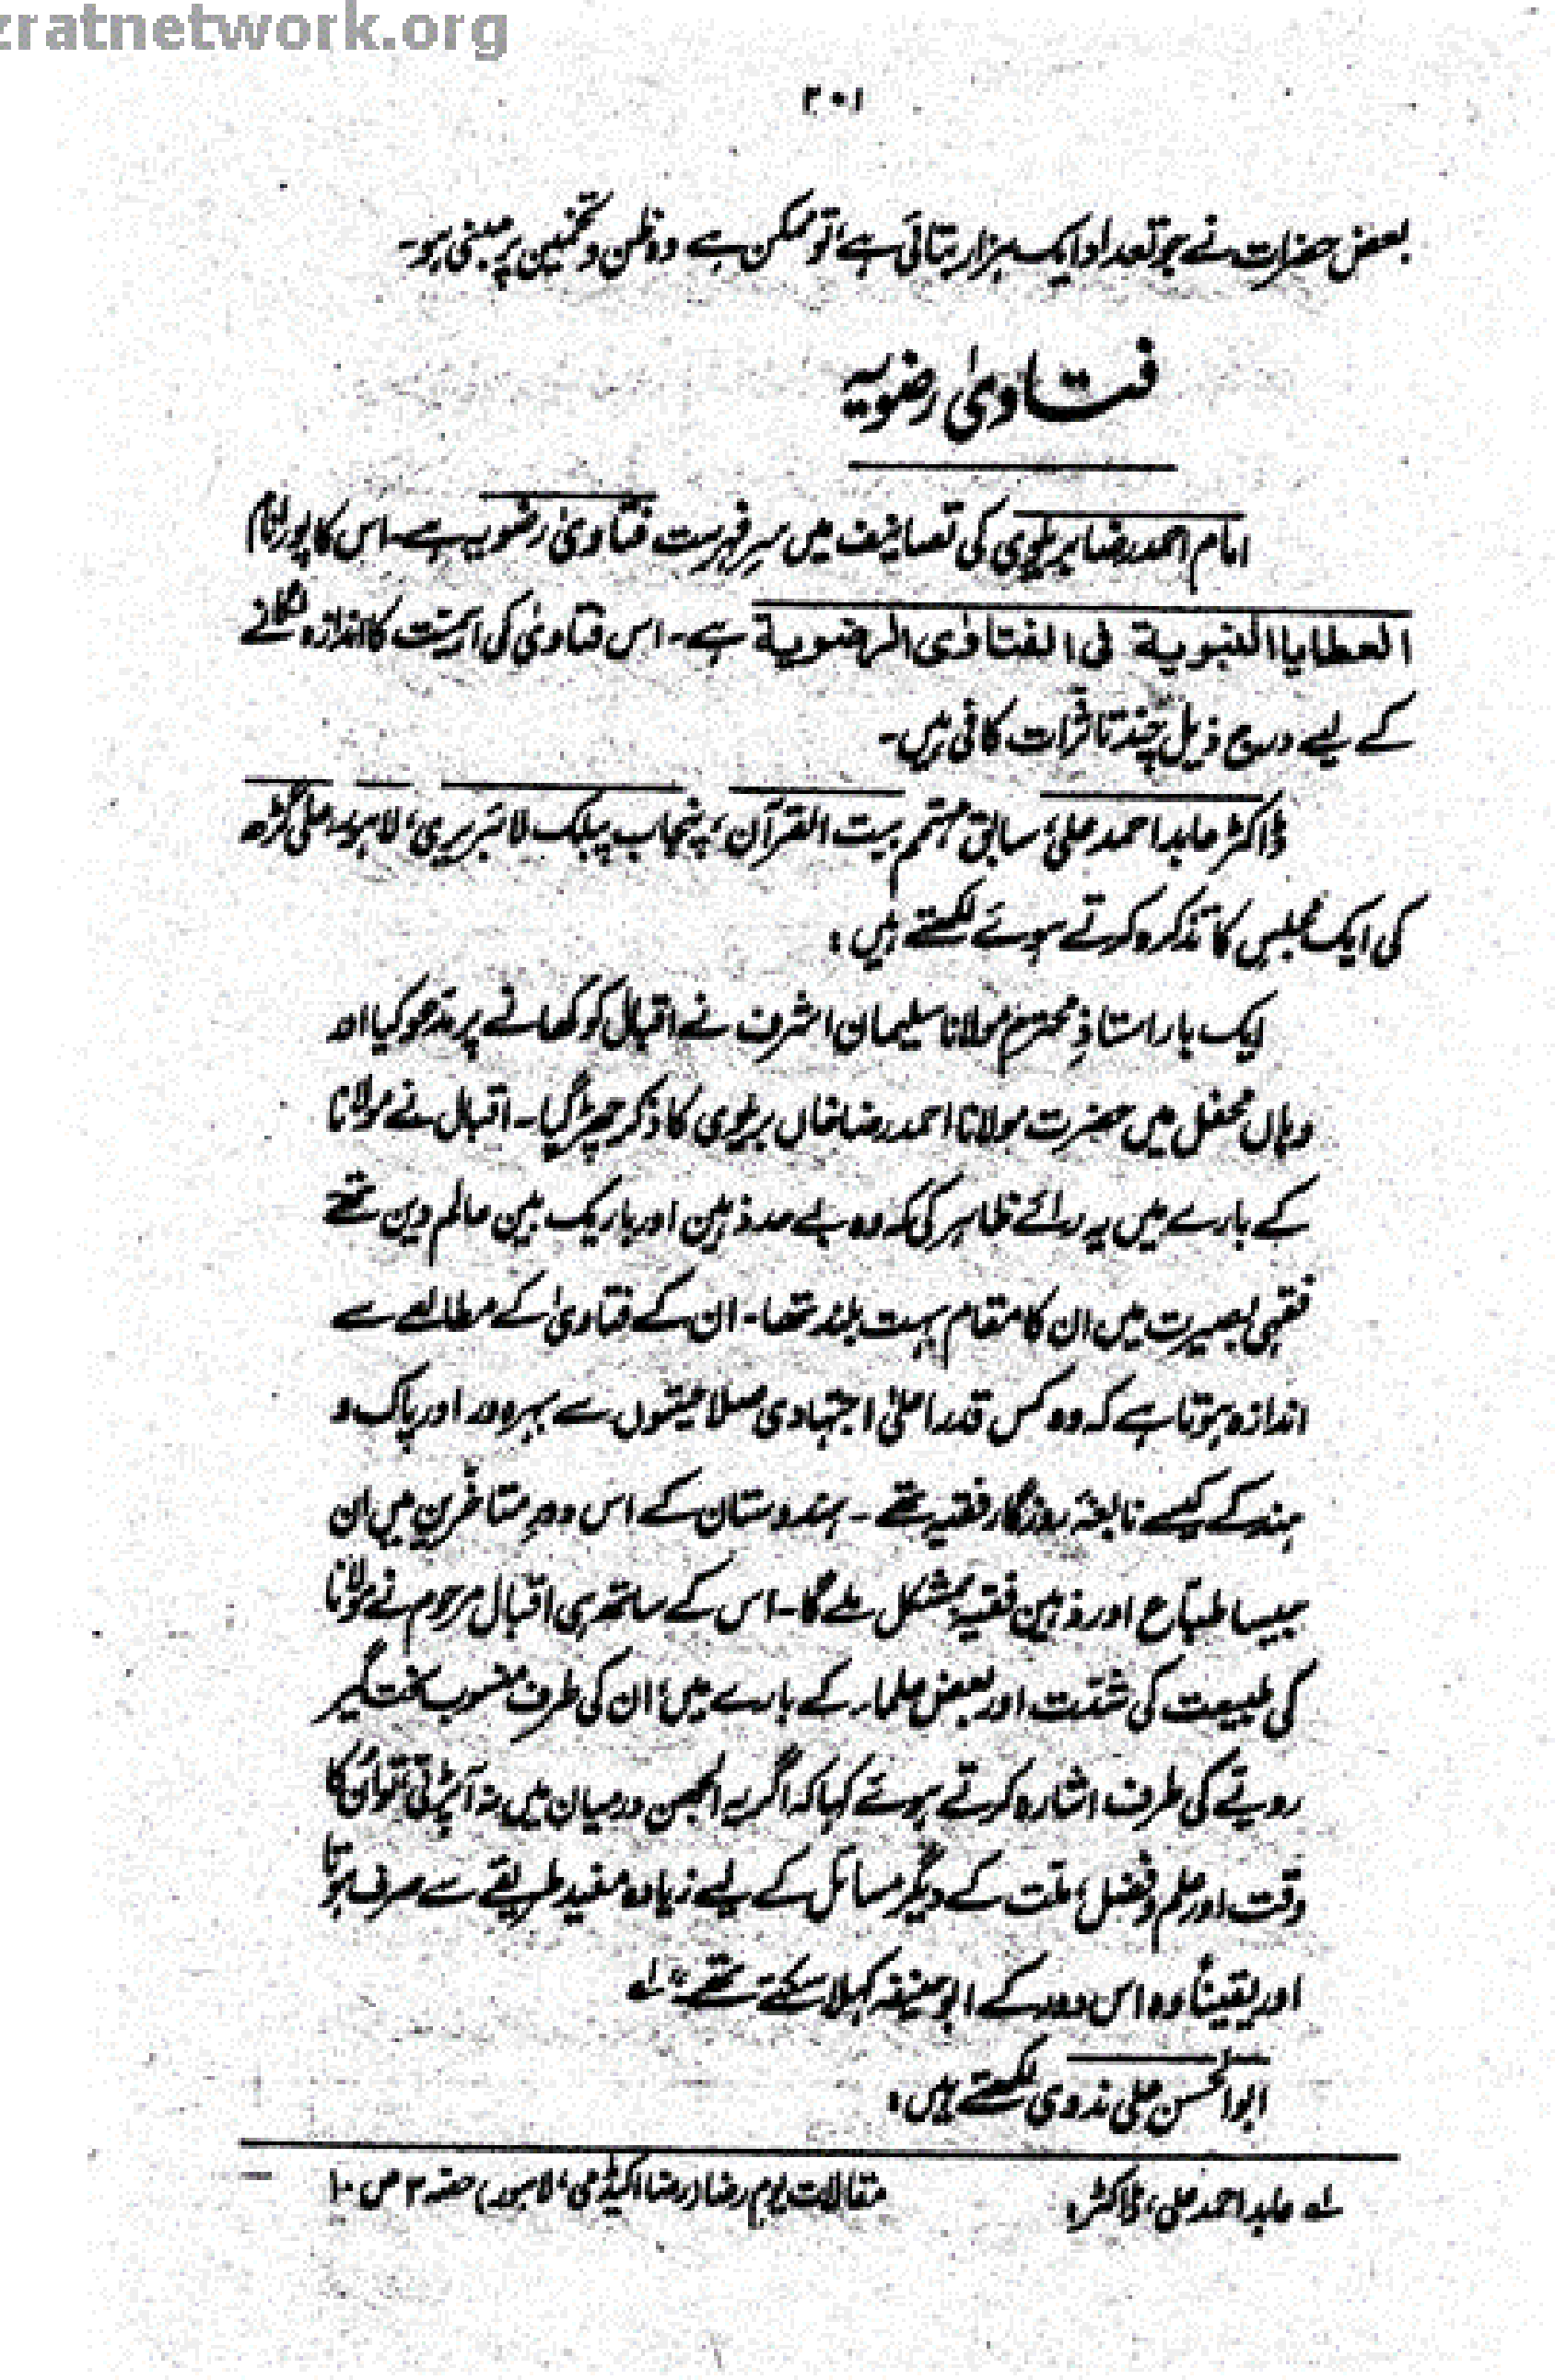 zratnetwork.org
۲۰۱
بعض حضرات نے جو تعداد ایک ہزار بتائی ہے، تو ممکن ہے وہ ظن و تخمین پر مبنی ہو۔
فتاویٰ رضویہ
امام احمد رضا بریلوی کی تصانیف میں سرفہرست فتاویٰ رضویہ ہے۔ اس کا پورا نام
العطایا النبویة فی الفتاوی الرضویة ہے۔ اس فتاویٰ کی اہمیت کا اندازہ لگانے
کے لیے درج ذیل چند تاثرات کافی ہیں۔
ڈاکٹر عابد احمد علی، سابق مہتمم بیت القرآن، پنجاب پبلک لائبریری، لاہور، علی گڑھ
کی ایک مجلس کا تذکرہ کرتے ہوئے لکھتے ہیں:
ایک بار استاذِ محترم مولانا سلیمان اشرف نے اقبال کو کھانے پر مدعو کیا اور
وہاں محفل میں حضرت مولانا احمد رضا خاں بریلوی کا ذکر چھڑ گیا۔ اقبال نے مولانا
کے بارے میں یہ رائے ظاہر کی کہ وہ بے حد ذہین اور باریک بین عالم دین تھے
فقہی بصیرت میں ان کا مقام بہت بلند تھا۔ ان کے فتاویٰ کے مطالعے سے
اندازہ ہوتا ہے کہ وہ کس قدر اعلیٰ اجتہادی صلاحیتوں سے بہرہ ور اور پاک و
ہند کے کیسے نابغۂ روزگار فقیہ تھے۔ ہندوستان کے اس دورِ متاخرین میں ان
جیسا طباع اور ذہین فقیہ بمشکل ملے گا۔ اس کے ساتھ ہی اقبال مرحوم نے مولانا
کی طبیعت کی شدت اور بعض علماء کے بارے میں، ان کی طرف منسوب سخت گیر
رویے کی طرف اشارہ کرتے ہوئے کہا کہ اگر یہ الجھن درمیان میں نہ آ پڑتی، تو ان کا
وقت اور علم و فضل، ملت کے دیگر مسائل کے لیے زیادہ مفید طریقے سے صرف ہوتا
اور یقیناً وہ اس دور کے ابو حنیفہ کہلا سکتے تھے"۔ لہ
ابوالحسن علی ندوی لکھتے ہیں:
لہ عابد احمد علی، ڈاکٹر: مقالات یوم رضا (رضا اکیڈمی، لاہور) حصہ ۳ ص ۱۰